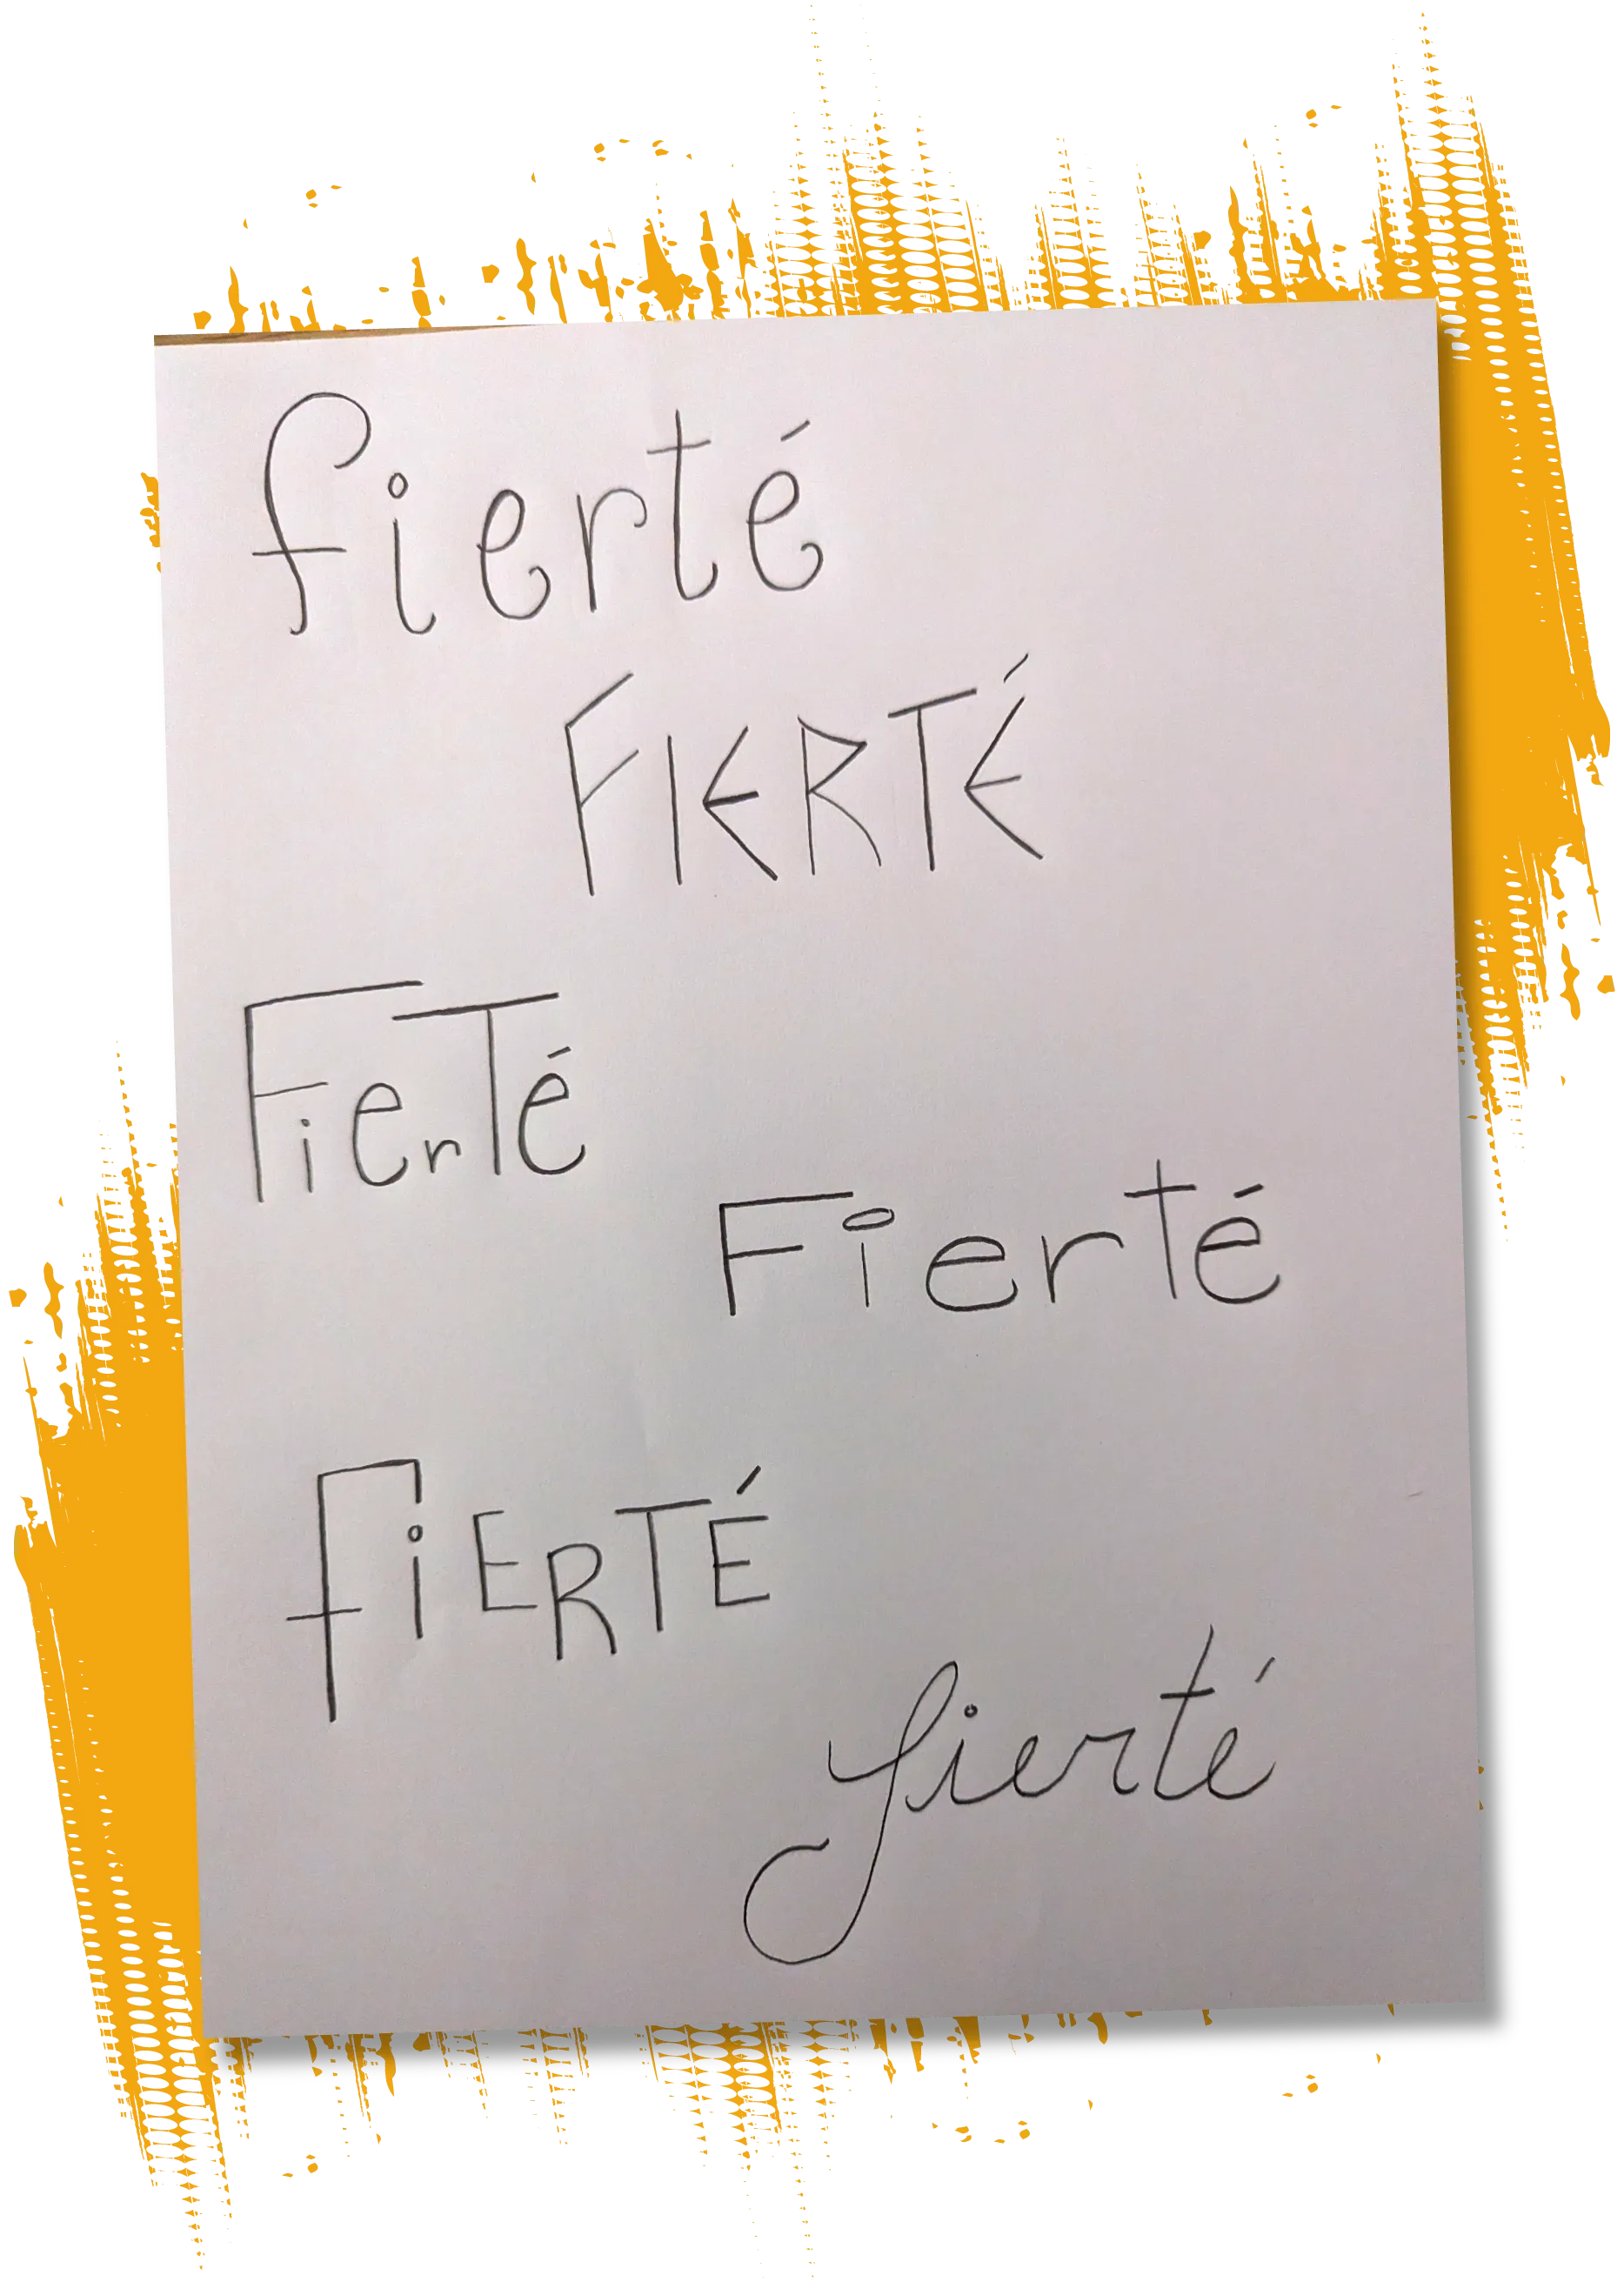 fierté
FIERTÉ
FierTé
Fierté
fiERTÉ
fierté